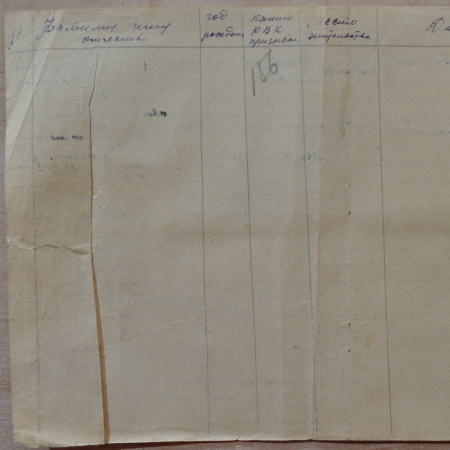 Фамилия имя отчество
год рождения
каким РВК призван
Место жительства
186